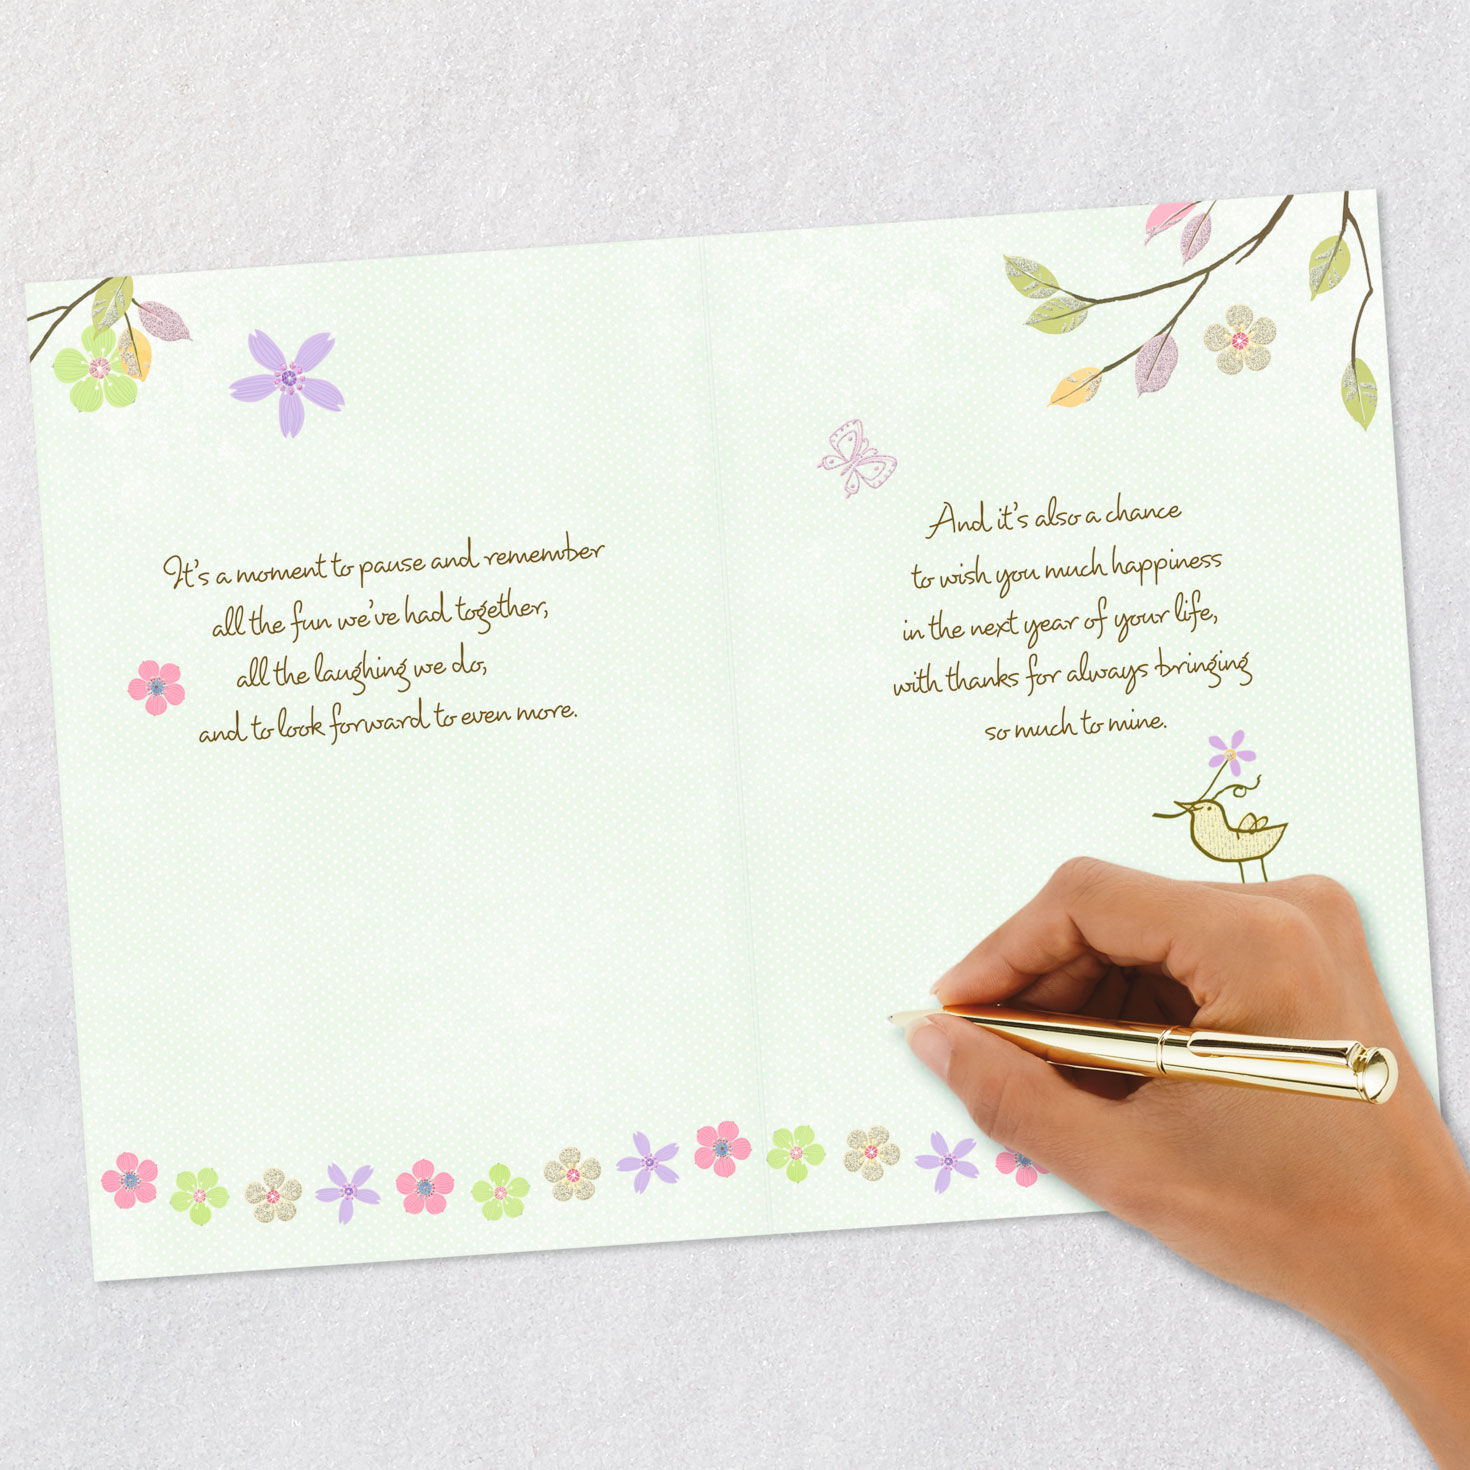 It's a moment to pause and remember
all the fun we've had together,
all the laughing we do,
and to look forward to even more.
And it's also a chance
to wish you much happiness
in the next year of your life,
with thanks for always bringing
so much to mine.